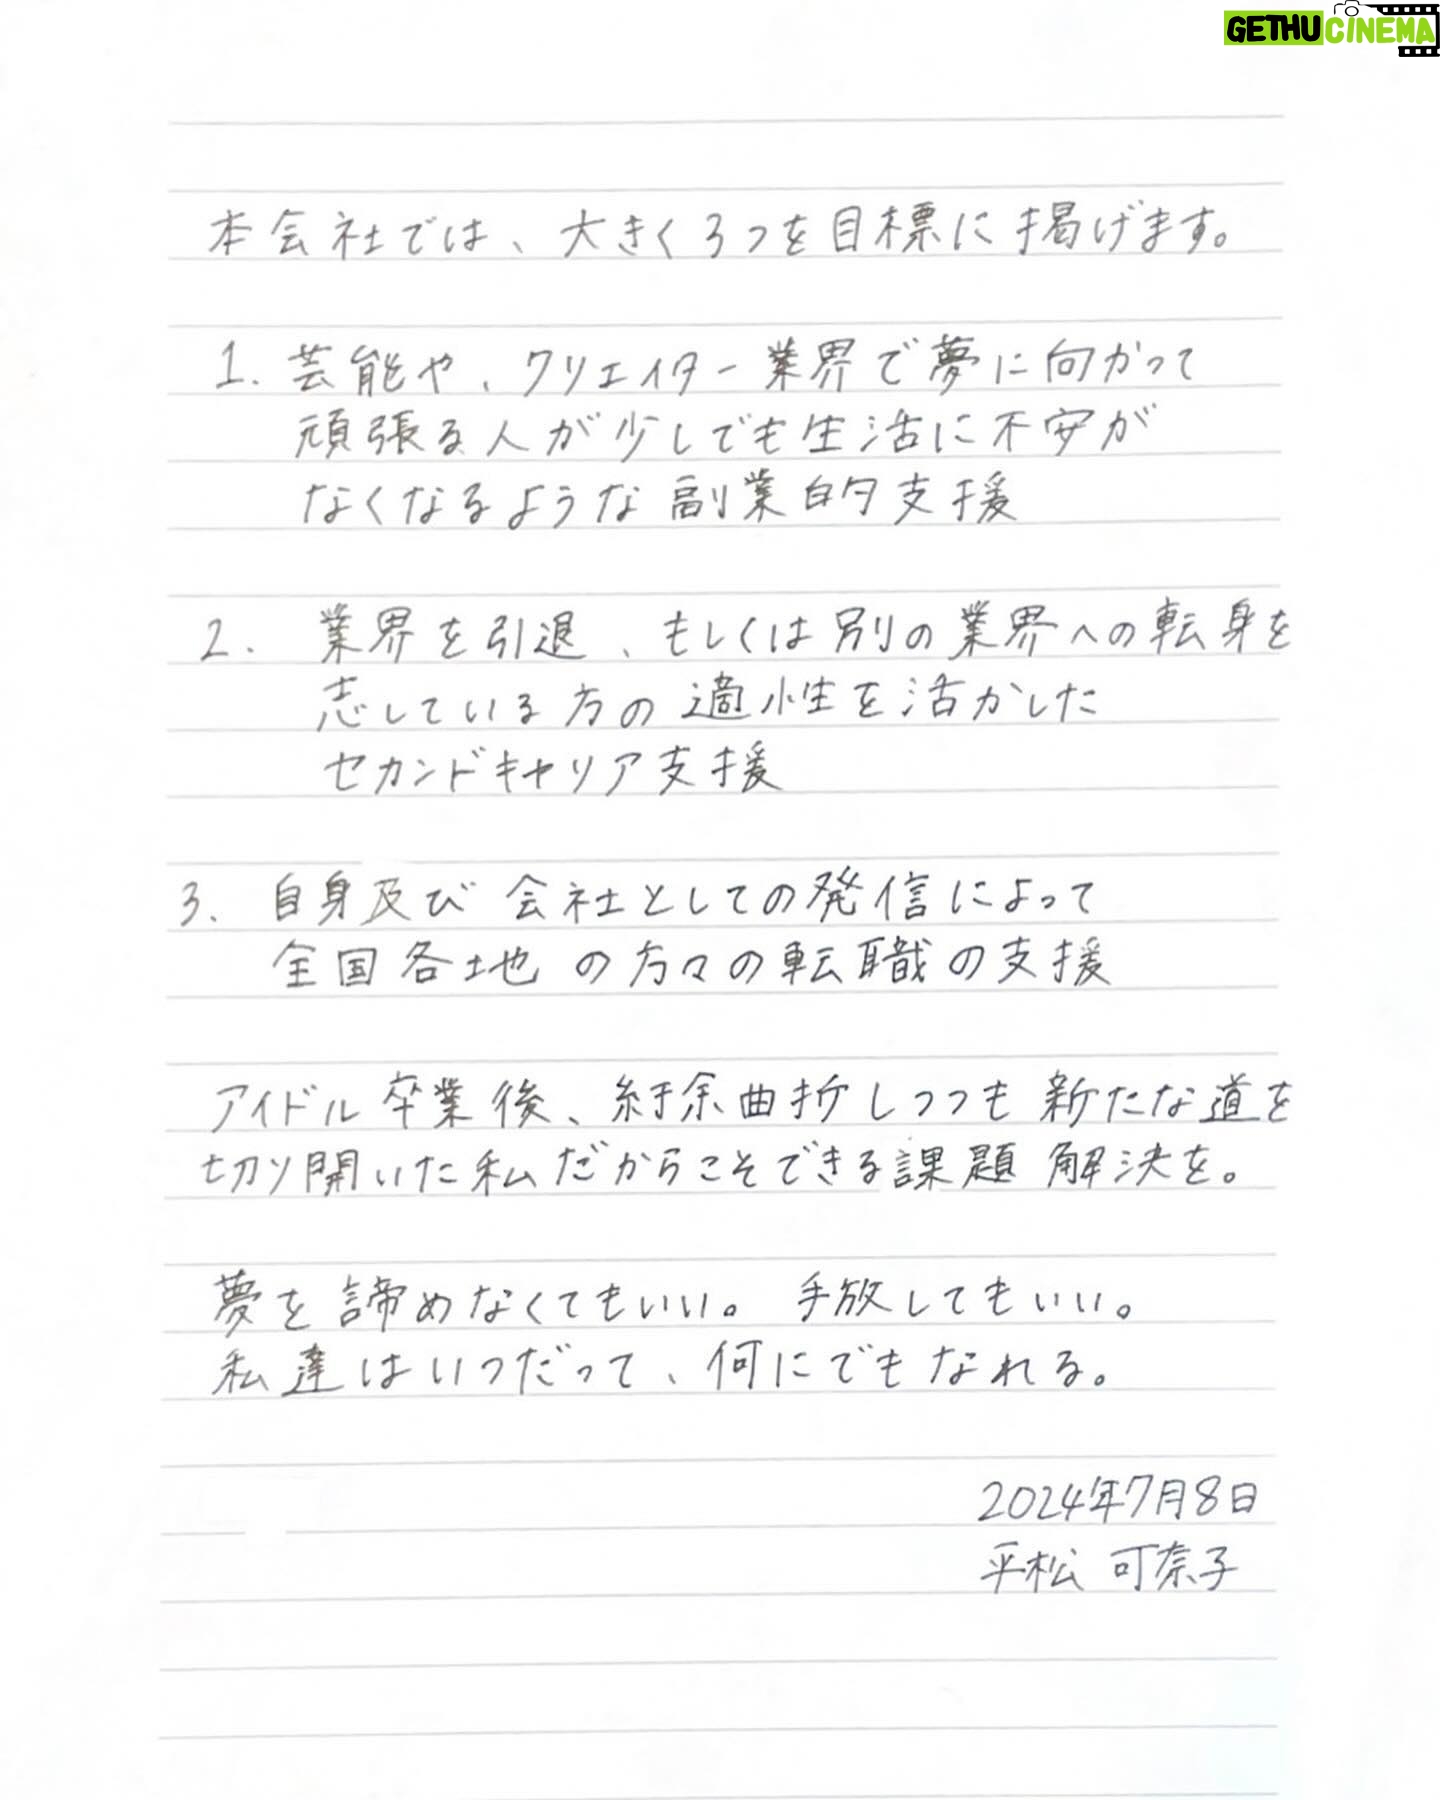 GETHUCINEMA
本会社では、大きく3つを目標に掲げます。
1. 芸能や、クリエイター業界で夢に向かって
頑張る人が少しでも生活に不安が
なくなるような副業的支援
2. 業界を引退、もしくは別の業界への転身を
志している方の適性を活かした
セカンドキャリア支援
3. 自身及び会社としての発信によって
全国各地の方々の転職の支援
アイドル卒業後、紆余曲折しつつも新たな道を
切り開いた私だからこそできる課題解決を。
夢を諦めなくてもいい。手放してもいい。
私達はいつだって、何にでもなれる。
2024年7月8日
平松 可奈子